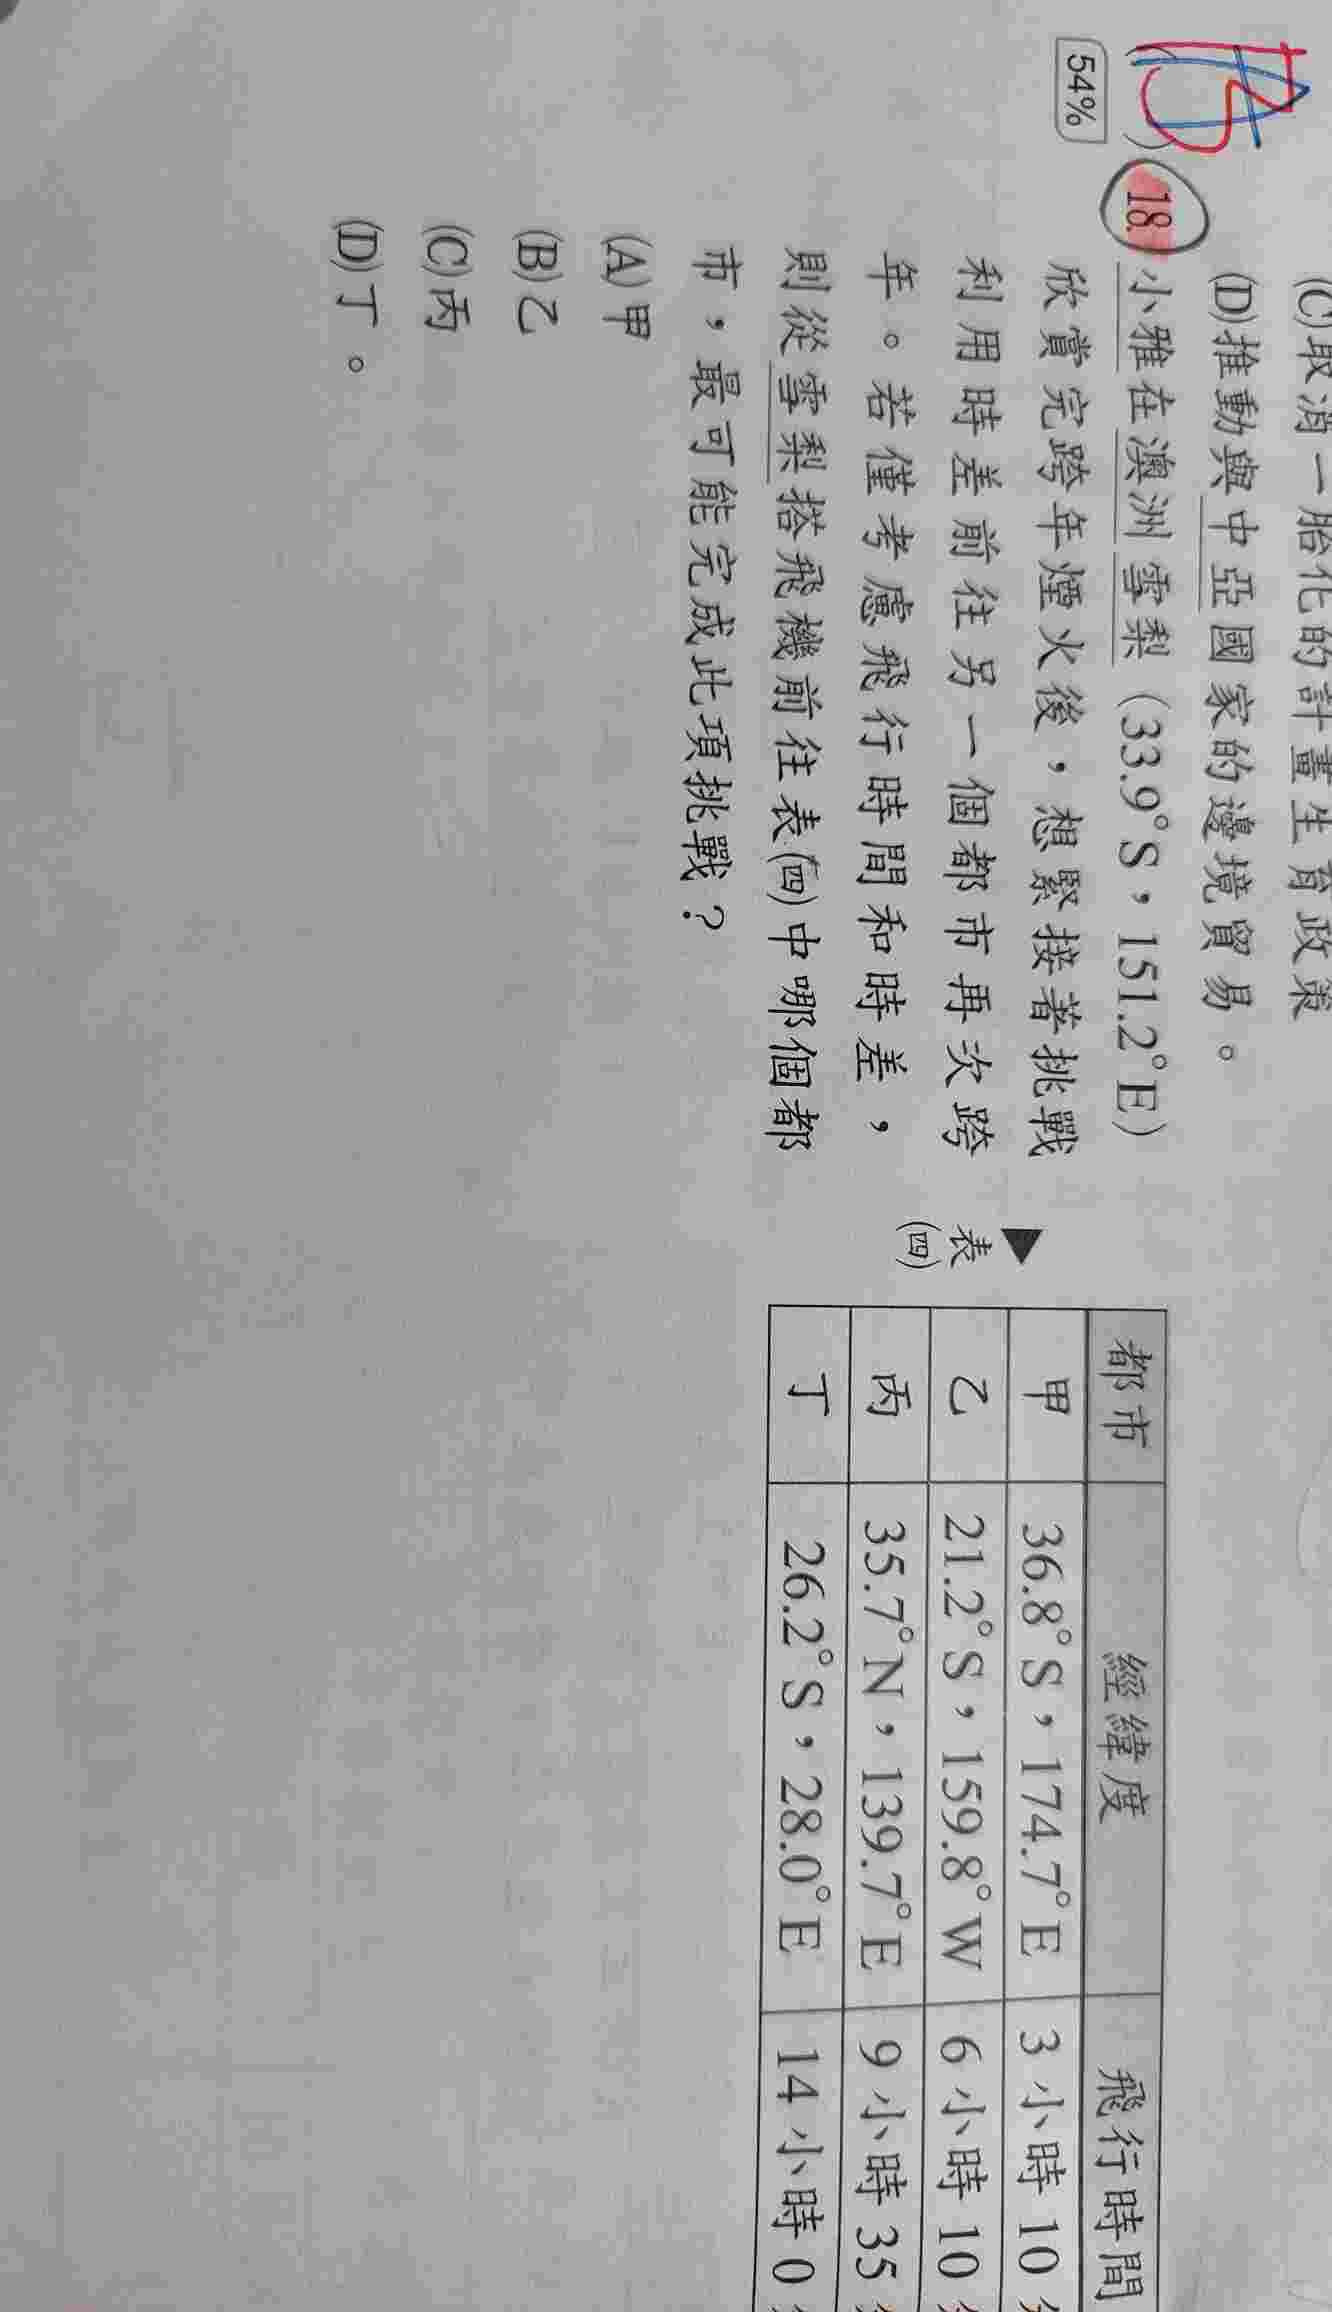 (C)取消一胎化的計畫生育政策
(D)推動與中亞國家的邊境貿易。
(B) 18. 小雅在澳洲雪梨（33.9°S，151.2°E）
54%
欣賞完跨年煙火後，想緊接著挑戰
利用時差前往另一個都市再次跨
年。若僅考慮飛行時間和時差，
則從雪梨搭飛機前往表(四)中哪個都
市，最可能完成此項挑戰？
(A)甲
(B)乙
(C)丙
(D)丁。
▲表(四)
都市 經緯度 飛行時間
甲 36.8°S，174.7°E 3小時10分
乙 21.2°S，159.8°W 6小時10分
丙 35.7°N，139.7°E 9小時35分
丁 26.2°S，28.0°E 14小時0分